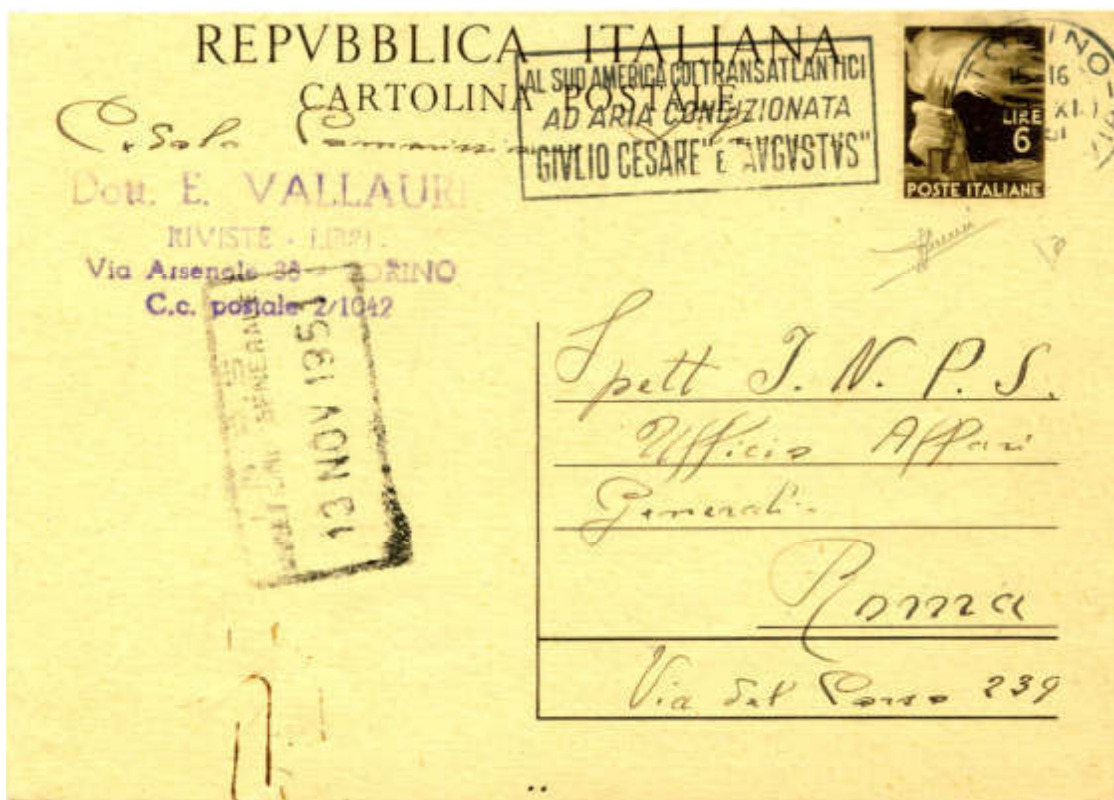 REPVBBLICA ITALIANA
CARTOLINA POSTALE
AL SUD AMERICA COI TRANSATLANTICI
AD ARIA CONDIZIONATA
"GIVLIO CESARE" E "AVGVSTVS"
TORINO
15-16
XI
LIRE
6
POSTE ITALIANE
Dott. E. VALLAURI
RIVISTE - LIBRI
Via Arsenale 38 - TORINO
C.c. postale 2/1042
13 NOV 1951
Spett I. N. P. S.
Ufficio Affari
Generali
Roma
Via del Corso 239